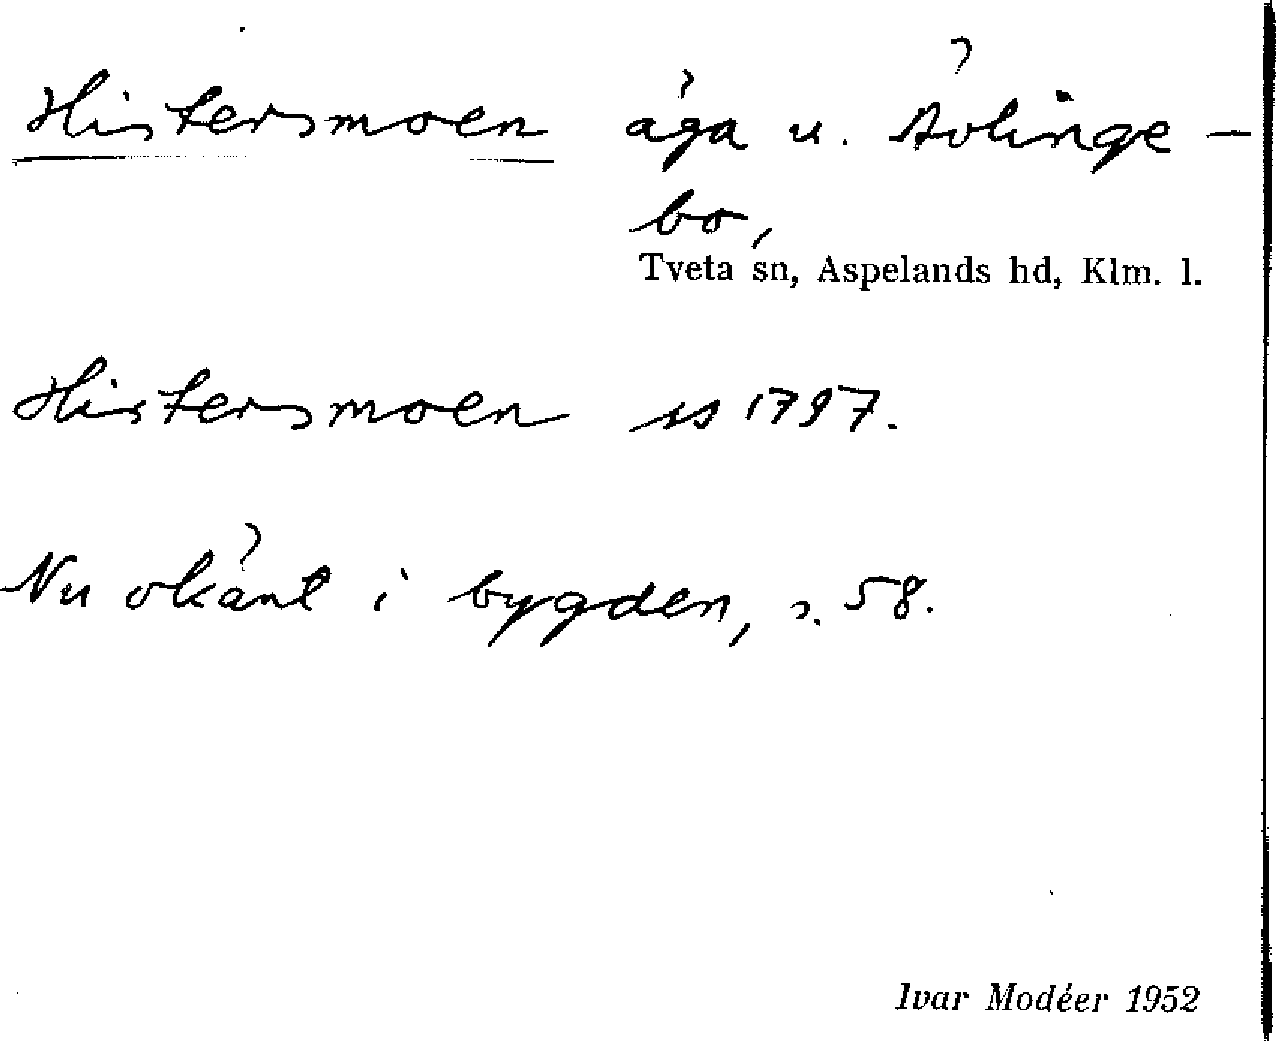 Histersmoen äga u. Ävlinge-
bo,
Tveta sn, Aspelands hd, Klm. l.
Histersmoen ss 1797.
Nu okänt i bygden, s. 58.
Ivar Modéer 1952